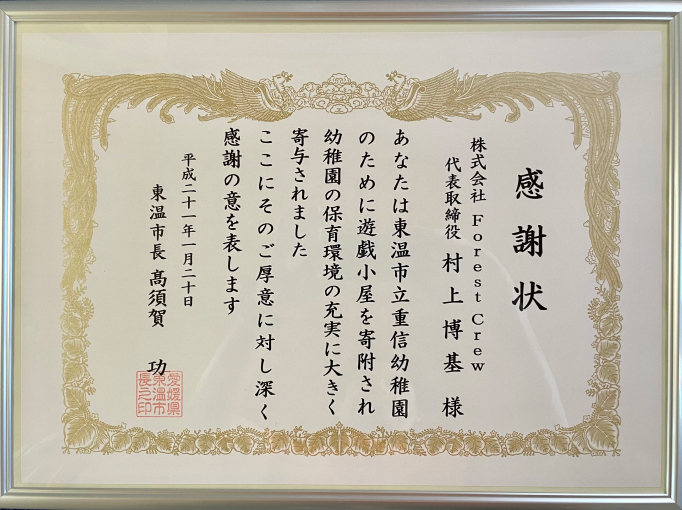 感謝状
株式会社 Forest Crew
代表取締役 村上博基 様
あなたは東温市立重信幼稚園
のために遊戯小屋を寄附され
幼稚園の保育環境の充実に大きく
寄与されました
ここにそのご厚意に対し深く
感謝の意を表します
平成二十一年一月二十日
東温市長 髙須賀 功
愛媛県
東温市
長之印